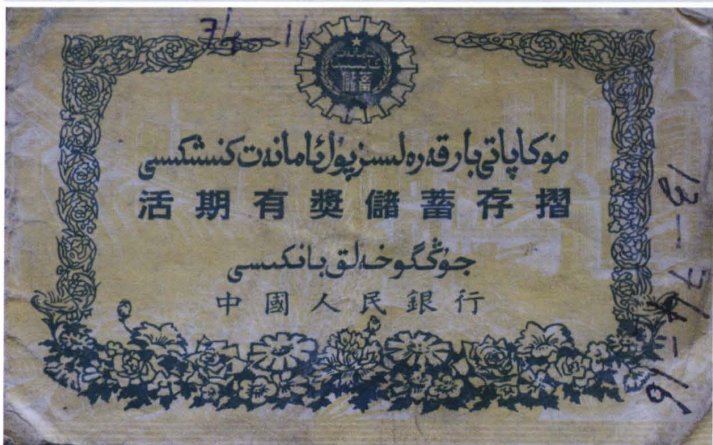 7/4-11
儲蓄
مۇكاپاتى بار قەرەلسىز پۇل ئامانەت كىنىشكىسى
活期有獎儲蓄存摺
جۇڭگو خەلق بانكىسى
中國人民銀行
13-74-16